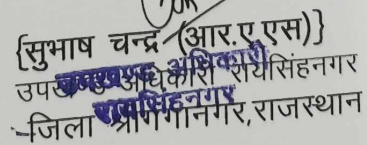 {सुभाष चन्द्र (आर.ए.एस)}
उपखण्ड अधिकारी रायसिंहनगर
उपखण्ड अधिकारी
रायसिंहनगर
जिला श्रीगंगानगर,राजस्थान